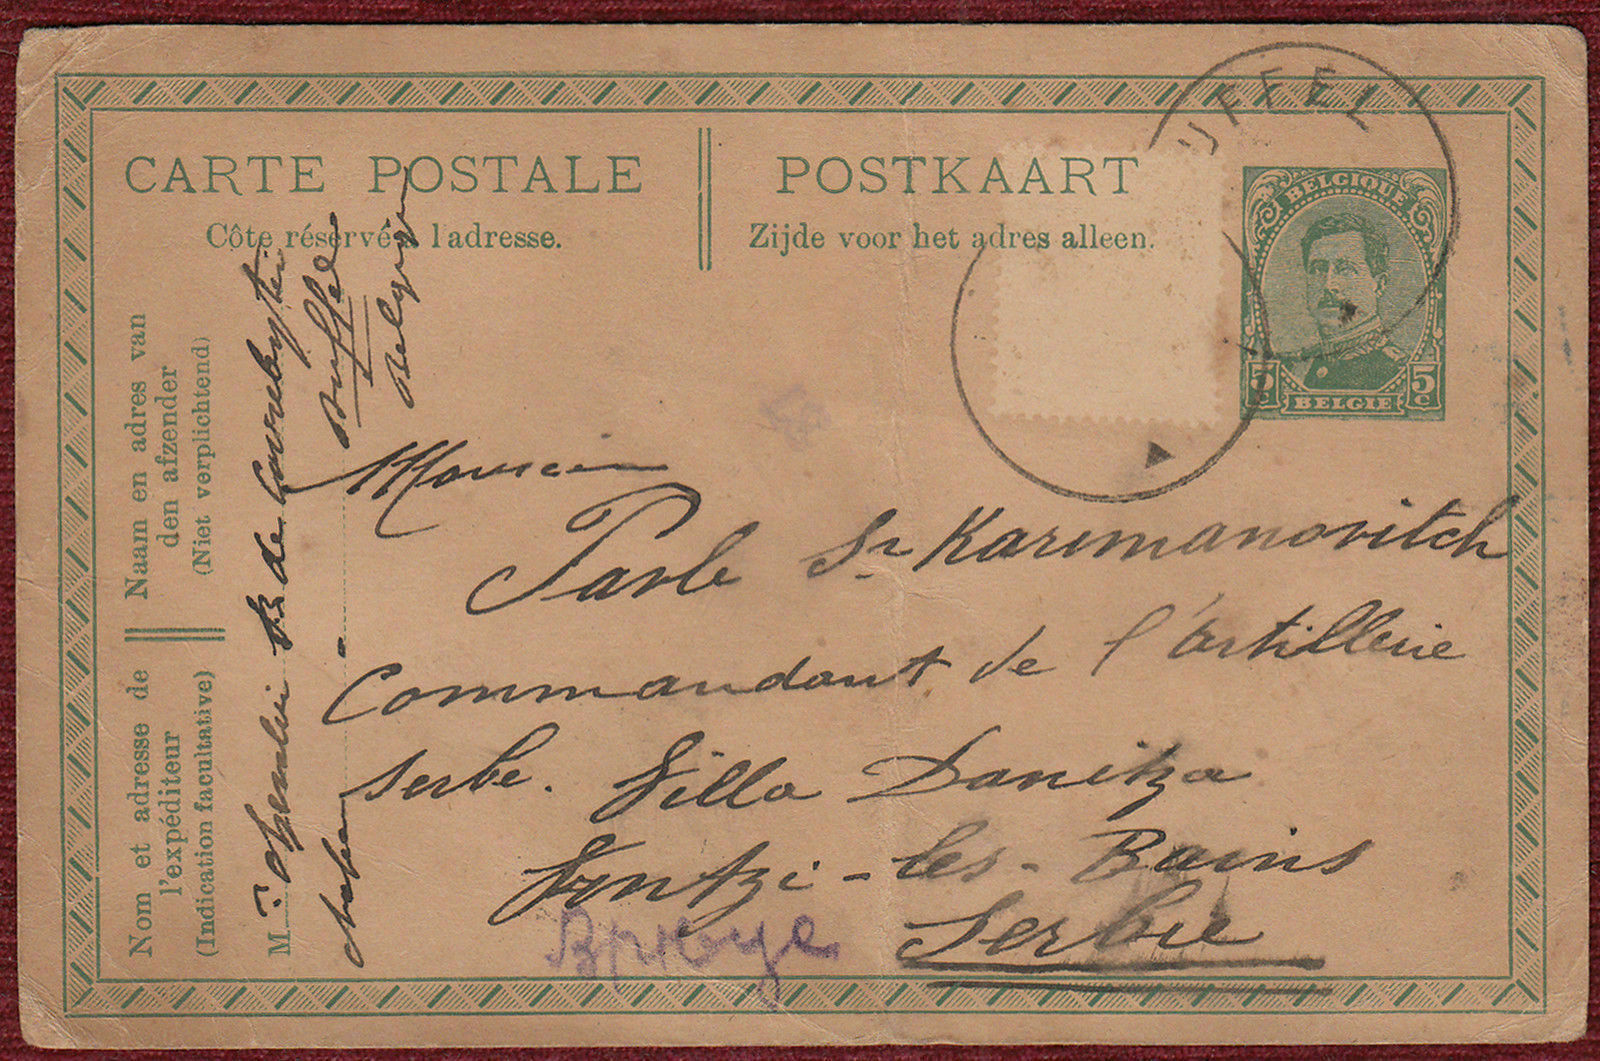 CARTE POSTALE
Côte réservé à l'adresse.
POSTKAART
Zijde voor het adres alleen.
UFFEL
BELGIQUE
5 C 5 C
BELGIE
Naam en adres van
den afzender
(Niet verplichtend)
Nom et adresse de
l'expéditeur
(Indication facultative)
M
B de
Buffel
Belgique
Monsieur
Pavle St Karemanovitch
Commandant de l'artillerie
serbe. Villa Danitza
les-Bains
Serbie